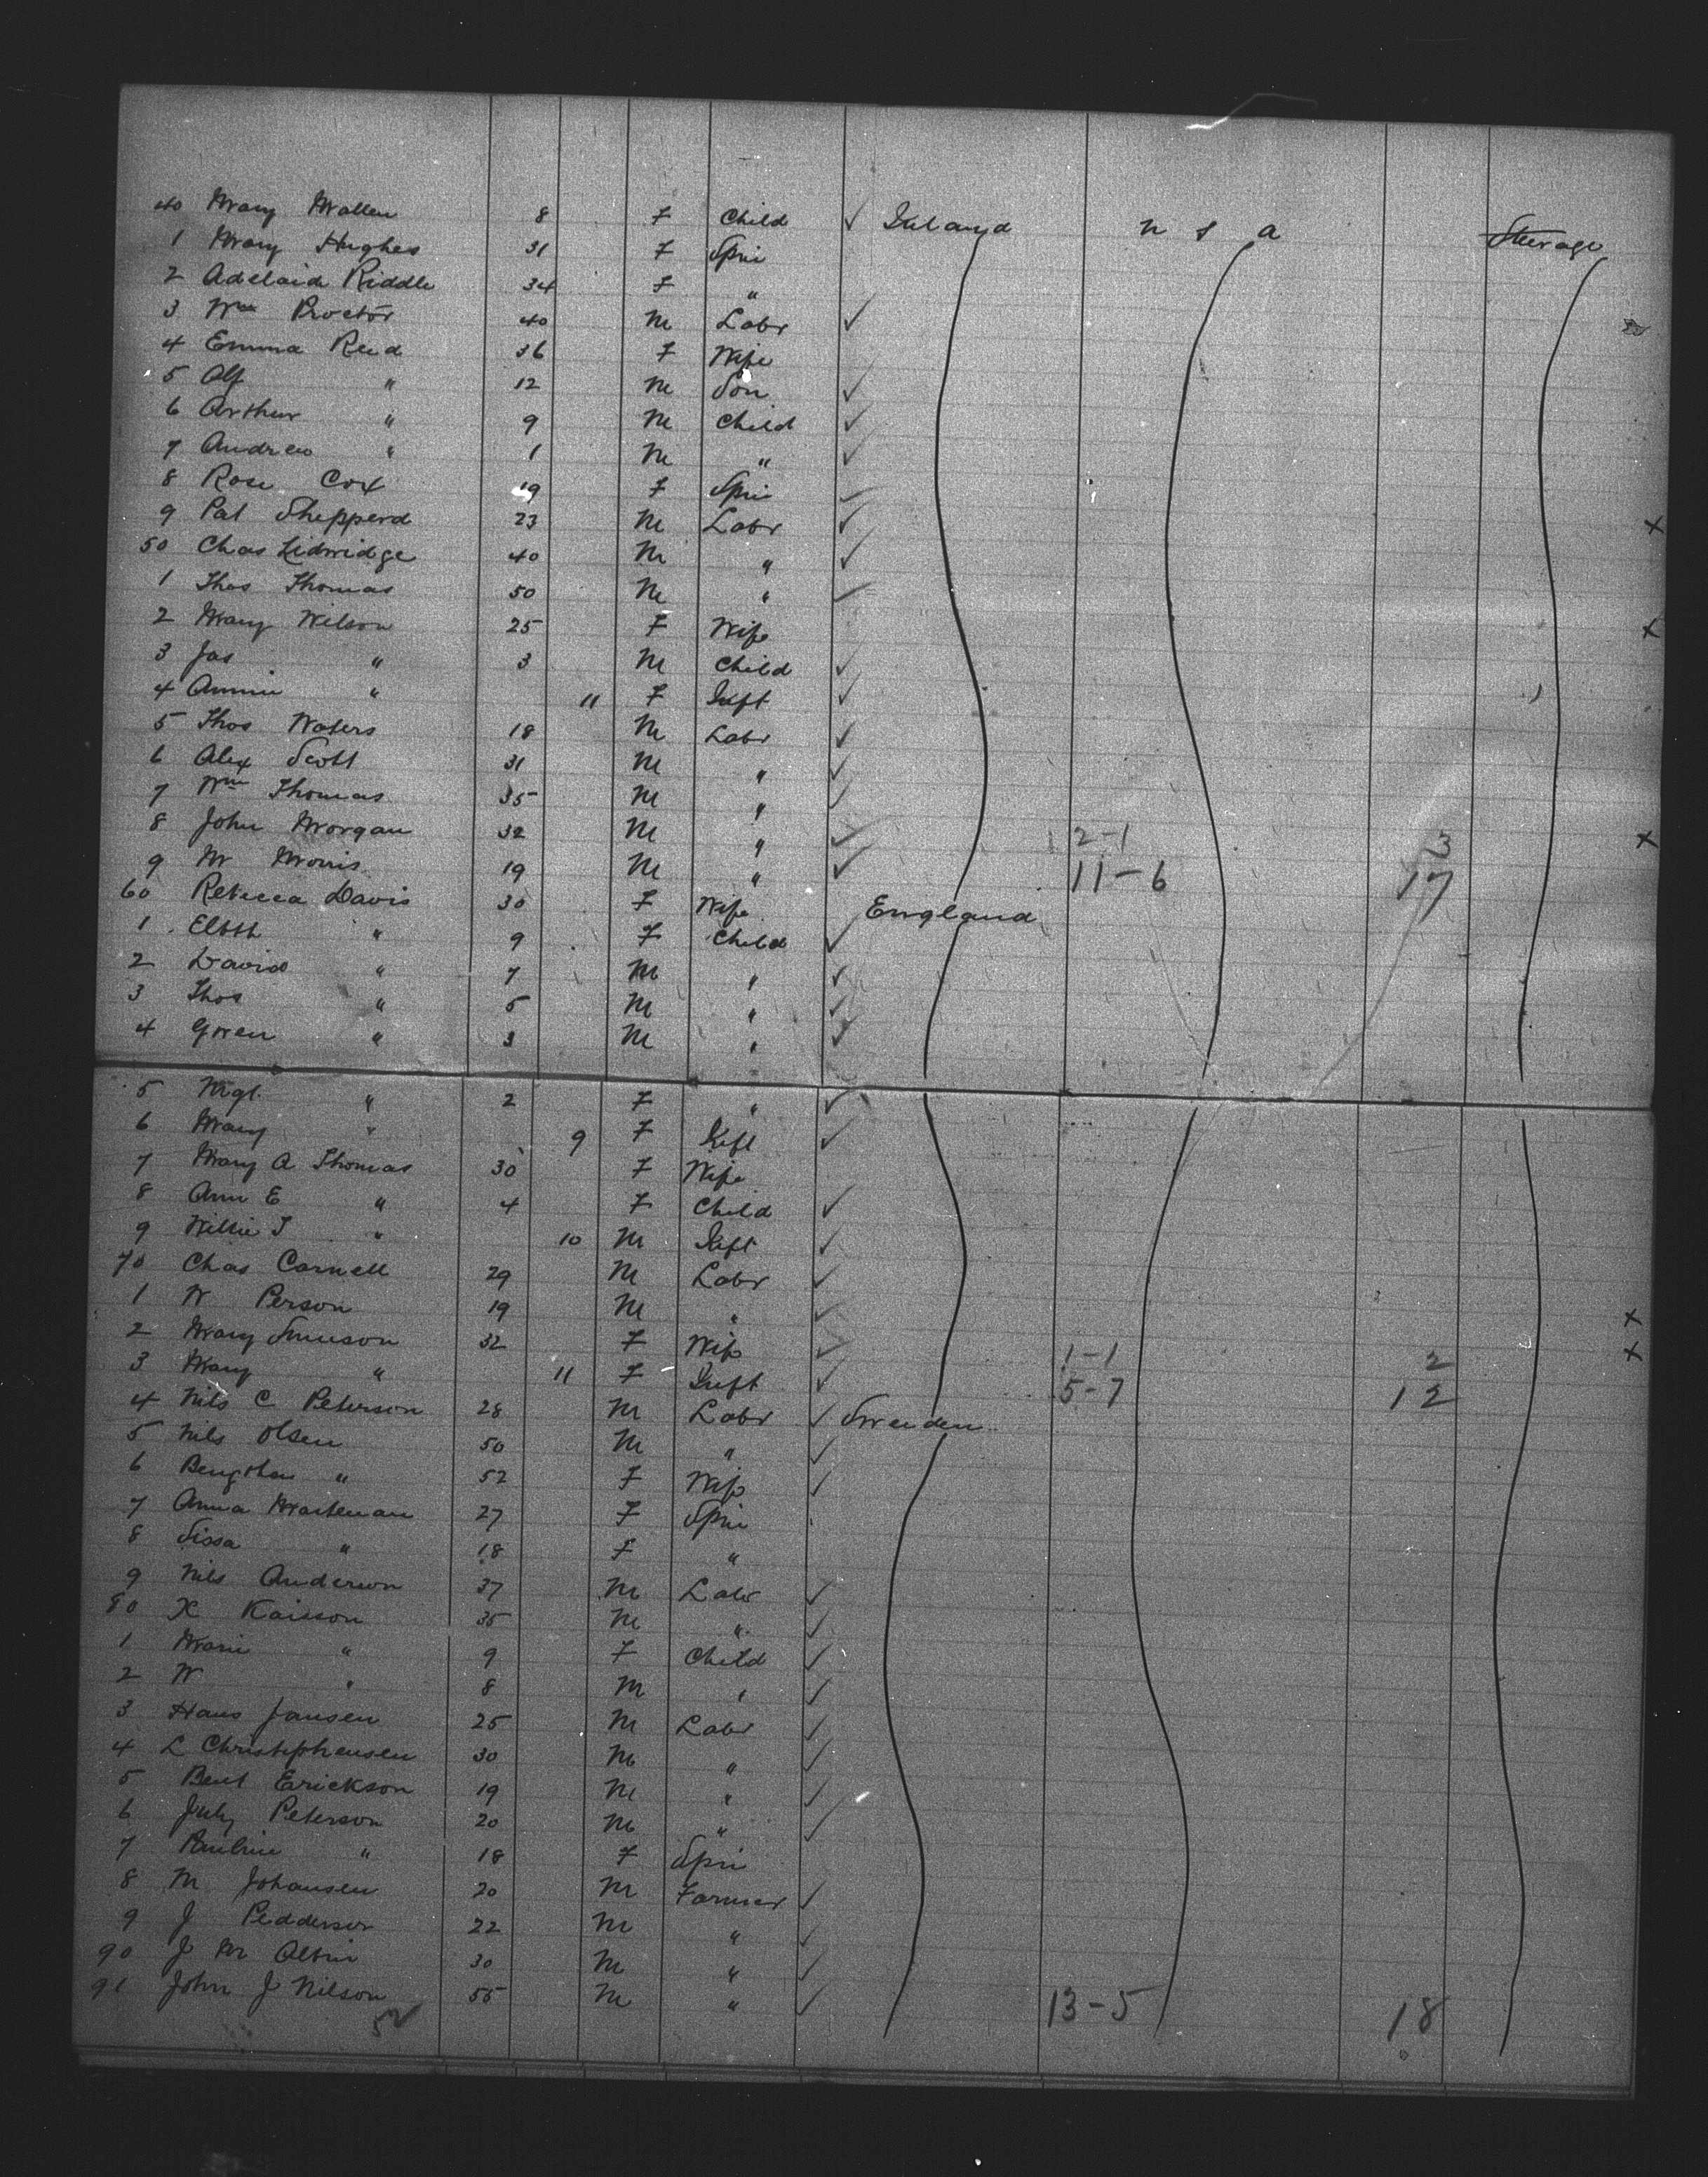 40 Mary Mallen 8 F Child ✓ Ireland U S A Steerage
1 Mary Hughes 31 F Spin
2 Adelaid Riddle 34 F "
3 Wm Proctor 40 M Labr ✓
4 Emma Reid 36 F Wife
5 Alf " 12 M Son ✓
6 Arthur " 9 M Child ✓
7 Andrew " 1 M " ✓
8 Rose Cox 19 F Spin ✓
9 Pat Shepperd 23 M Labr ✓ x
50 Chas 40 M " ✓
1 Thos Thomas 50 M " ✓
2 Mary Wilson 25 F Wife x
3 Jas " 3 M Child ✓
4 Annie " 11 F Inft ✓
5 Thos Waters 18 M Labr ✓
6 Alex Scott 31 M " ✓
7 Wm Thomas 35 M " ✓
8 John Morgan 32 M " ✓ 2-1 3 x
9 W Morris 19 M " ✓ 11-6 17
60 Rebecca Davis 30 F Wife England
1 Elbth " 9 F Child ✓
2 David " 7 M " ✓
3 Thos " 5 M " ✓
4 Gwen " 3 M " ✓
5 Mgt " 2 F " ✓
6 Mary " 9 F Inft ✓
7 Mary A Thomas 30 F Wife
8 Ann E " 4 F Child ✓
9 Willie T " 10 M Inft ✓
70 Chas Carnell 29 M Labr ✓
1 W Person 19 M " ✓ x
2 Mary 32 F Wife ✓ 1-1 2 x
3 Mary " 11 F Inft ✓ 5-7 12
4 Nils C Peterson 28 M Labr ✓ Sweeden
5 Nils Olsen 50 M " ✓
6 " 52 F Wife ✓
7 Anna 27 F Spin
8 Sissa " 18 F "
9 Nils Anderson 37 M Labr ✓
80 K Kaisson 35 M " ✓
1 Marie " 9 F Child ✓
2 W " 8 M " ✓
3 Hans Jansen 25 M Labr ✓
4 L Christiphensen 30 M " ✓
5 Bent Erickson 19 M " ✓
6 July Peterson 20 M " ✓
7 Pauline " 18 F Spin
8 M Johansen 20 M Farmer ✓
9 J Pedderson 22 M " ✓
90 J M 30 M " ✓
91 John J Nilson 55 M " ✓ 13-5 18
52